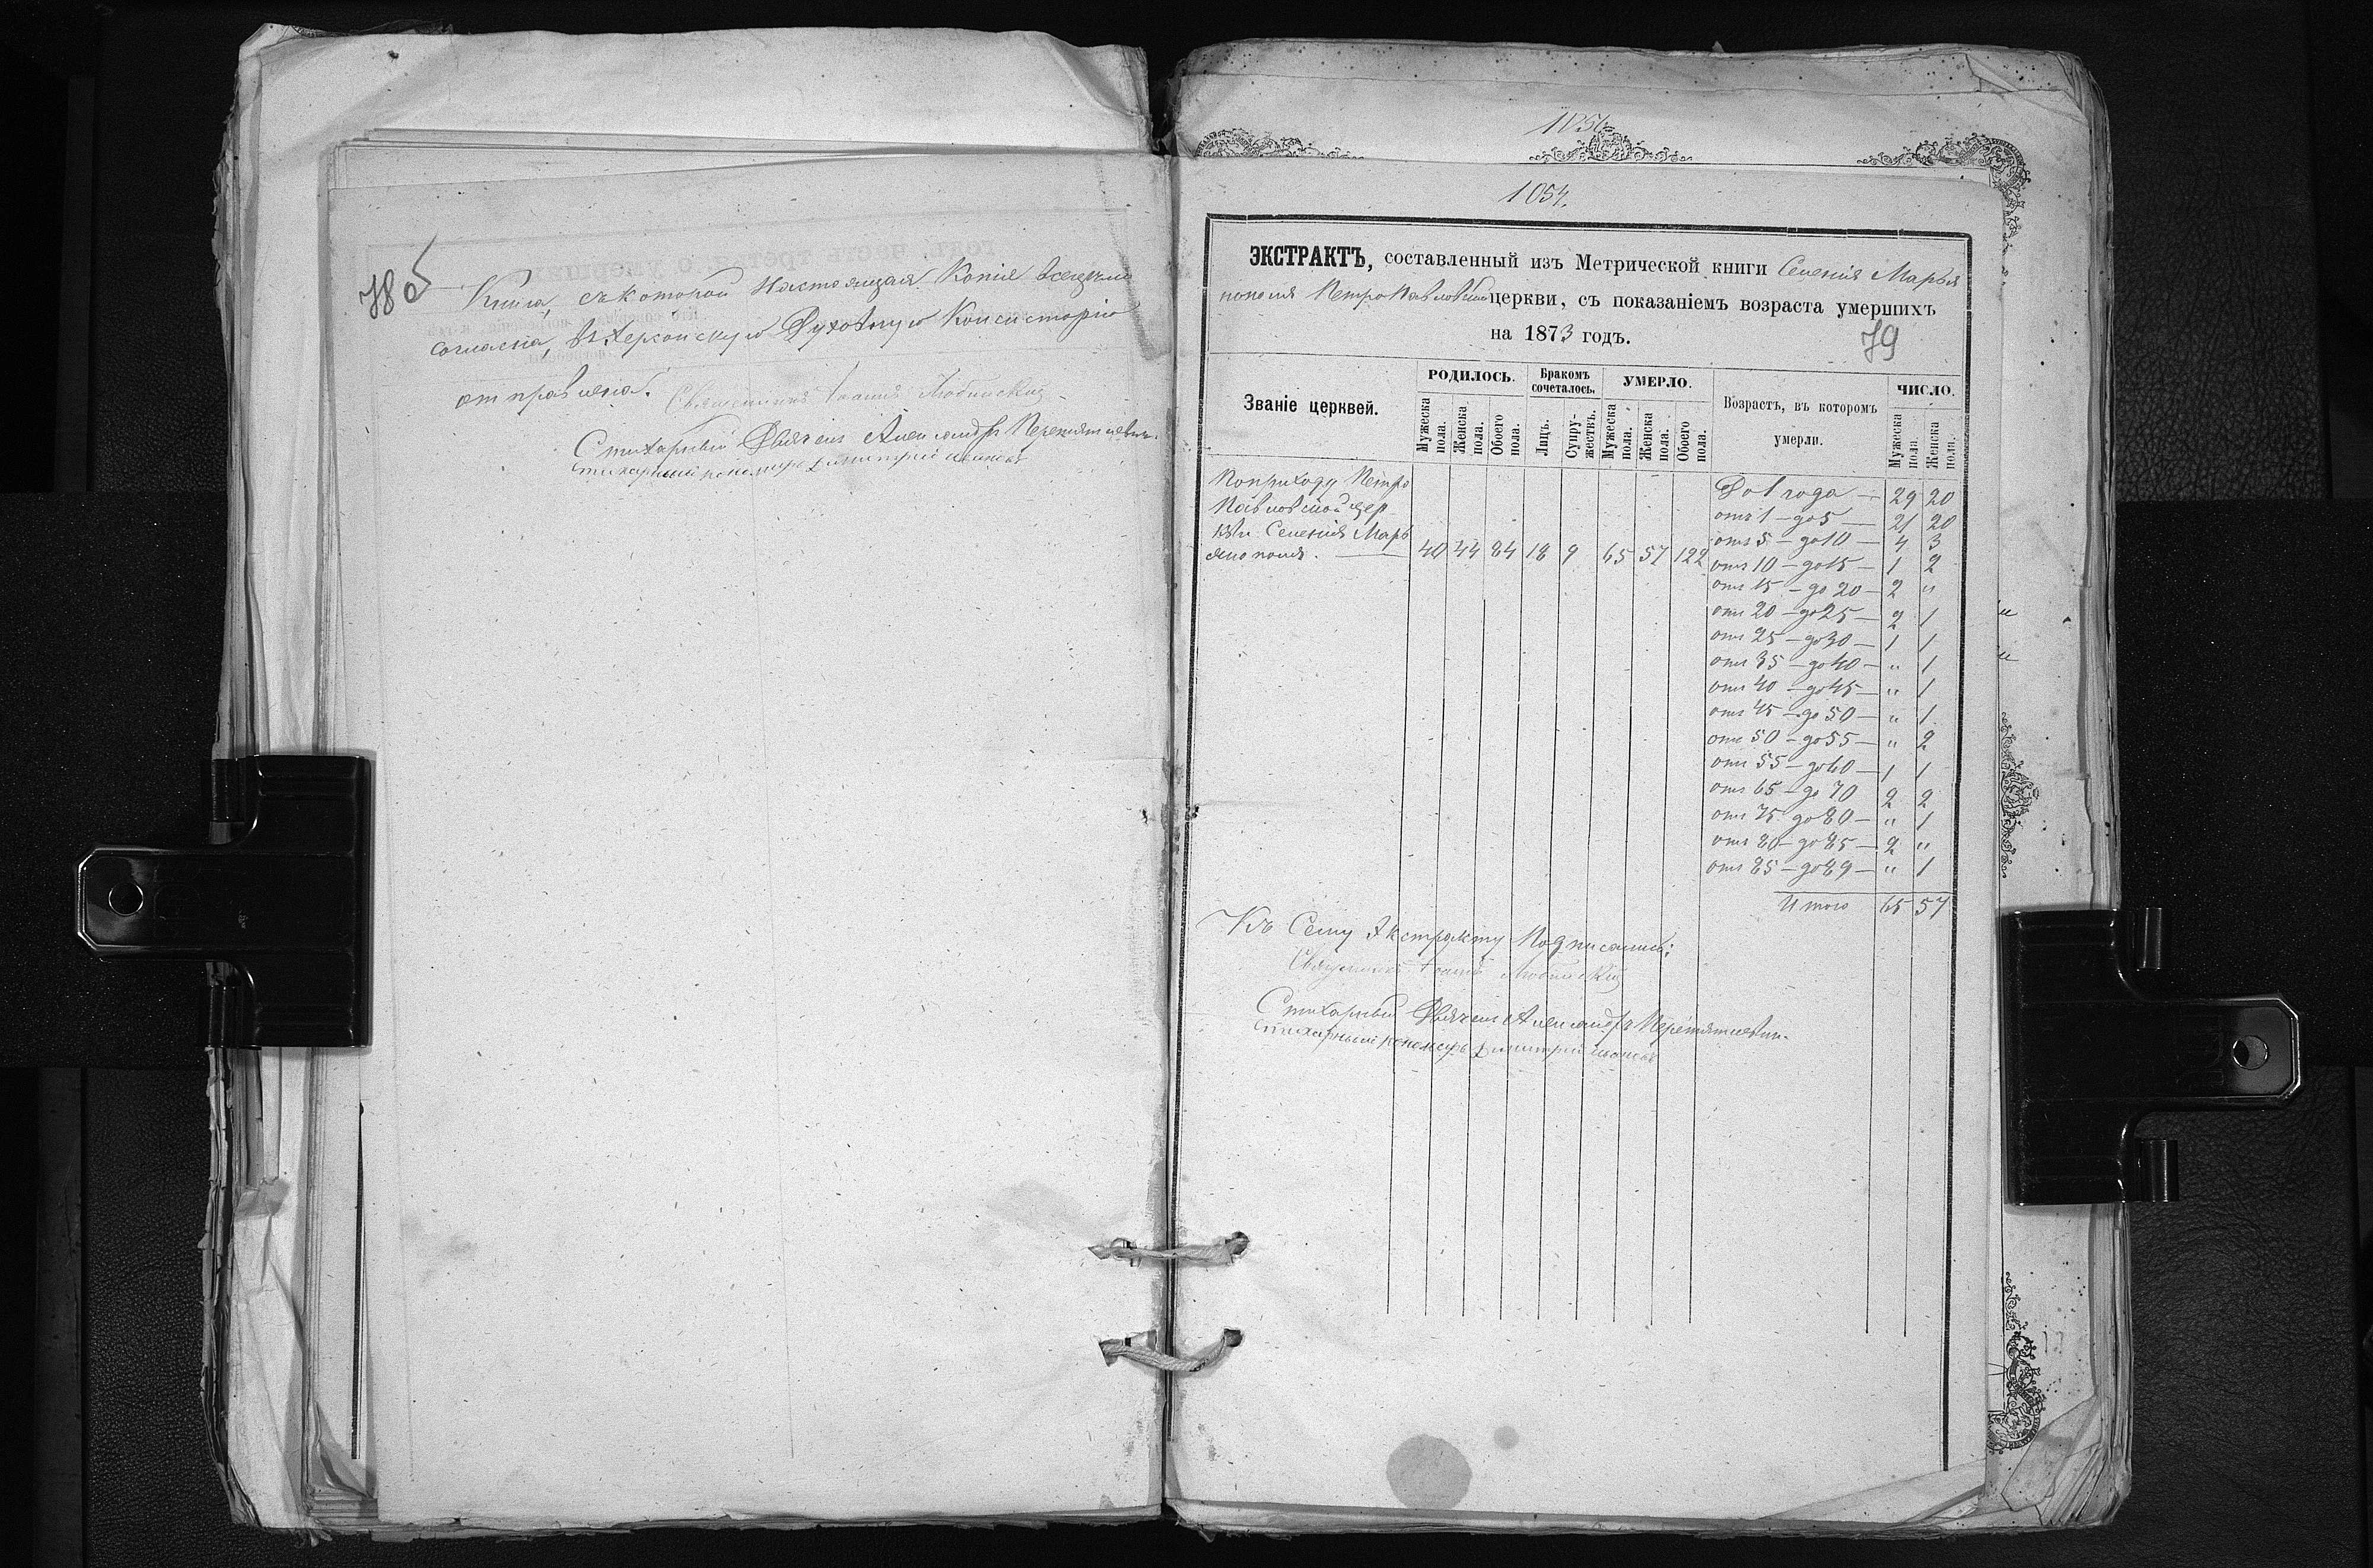 78 об
Книга, съ которой настоящая копія всецѣло
согласна, въ Херсонскую Духовную Консисторію
отправлена.
Священникъ Іоаннъ
Стихарный Дьячекъ Александръ
Стихарный пономарь Димитрій
1056
1054.
ЭКСТРАКТЪ, составленный изъ Метрической книги Селенія Марья
нополя Петро Павловской церкви, съ показаніемъ возраста умершихъ
на 1873 годъ.
79
Званіе церквей.
РОДИЛОСЬ.
Мужеска пола.
Женска пола.
Обоего пола.
Бракомъ сочеталось.
Лицъ.
Супружествъ.
УМЕРЛО.
Мужеска пола.
Женска пола.
Обоего пола.
Возрастъ, въ которомъ
умерли.
ЧИСЛО.
Мужеска пола.
Женска пола.
По приходу Петро
Павловской цер
кви Селенія Марь
янополя. 40 44 84 18 9 65 57 122
До 1 года — 29 20
отъ 1 — до 5 — 21 20
отъ 5 — до 10 — 4 3
отъ 10 — до 15 — 1 2
отъ 15 — до 20 — 2 "
отъ 20 — до 25 — 2 1
отъ 25 — до 30 — 1 1
отъ 35 — до 40 — " 1
отъ 40 — до 45 — " 1
отъ 45 — до 50 — " 1
отъ 50 — до 55 — " 2
отъ 55 — до 60 — 1 1
отъ 65 — до 70 2 2
отъ 75 до 80 — " 1
отъ 80 — до 85 — 2 "
отъ 85 — до 89 — " 1
Итого 65 57
Къ Сему Экстракту Подписались:
Священникъ Іоаннъ
Стихарный Дьячекъ Александръ
Стихарный пономарь Димитрій